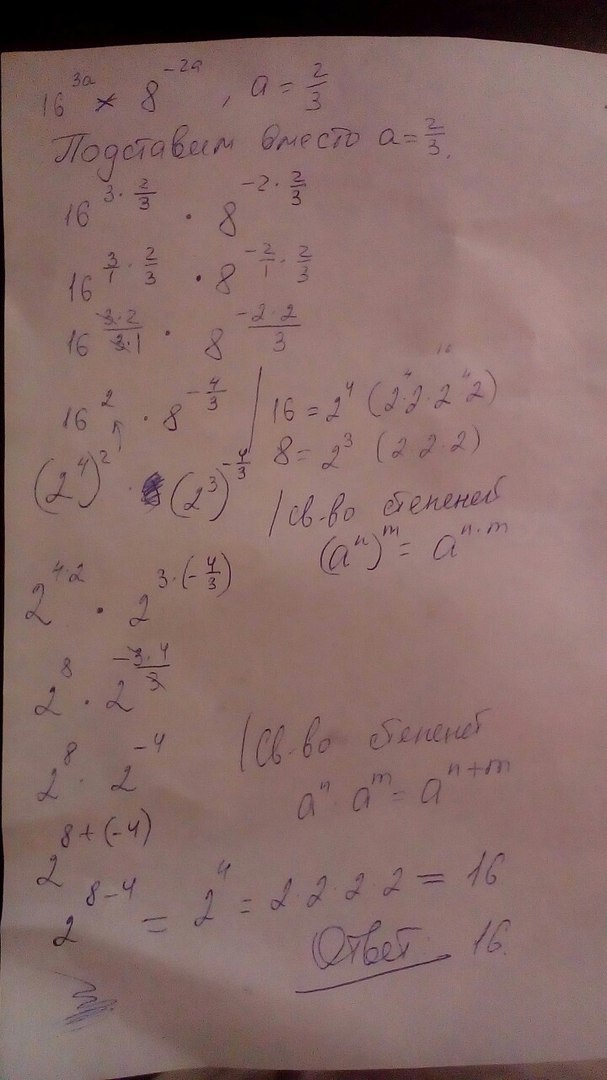 16^{3a} × 8^{-2a}, a = 2/3
Подставим вместо a = 2/3.
16^{3·2/3} · 8^{-2·2/3}
16^{3/1·2/3} · 8^{-2/1·2/3}
16^{3·2/3·1} · 8^{-2·2/3}
16^2 · 8^{-4/3} | 16 = 2^4 (2·2·2·2)
8 = 2^3 (2·2·2)
(2^4)^2 · (2^3)^{-4/3}
/ св-во степеней
(a^n)^m = a^{n·m}
2^{4·2} · 2^{3·(-4/3)}
2^8 · 2^{-3·4/3}
2^8 · 2^{-4} / Св-во степеней
a^n · a^m = a^{n+m}
2^{8+(-4)}
2^{8-4} = 2^4 = 2·2·2·2 = 16
Ответ 16.